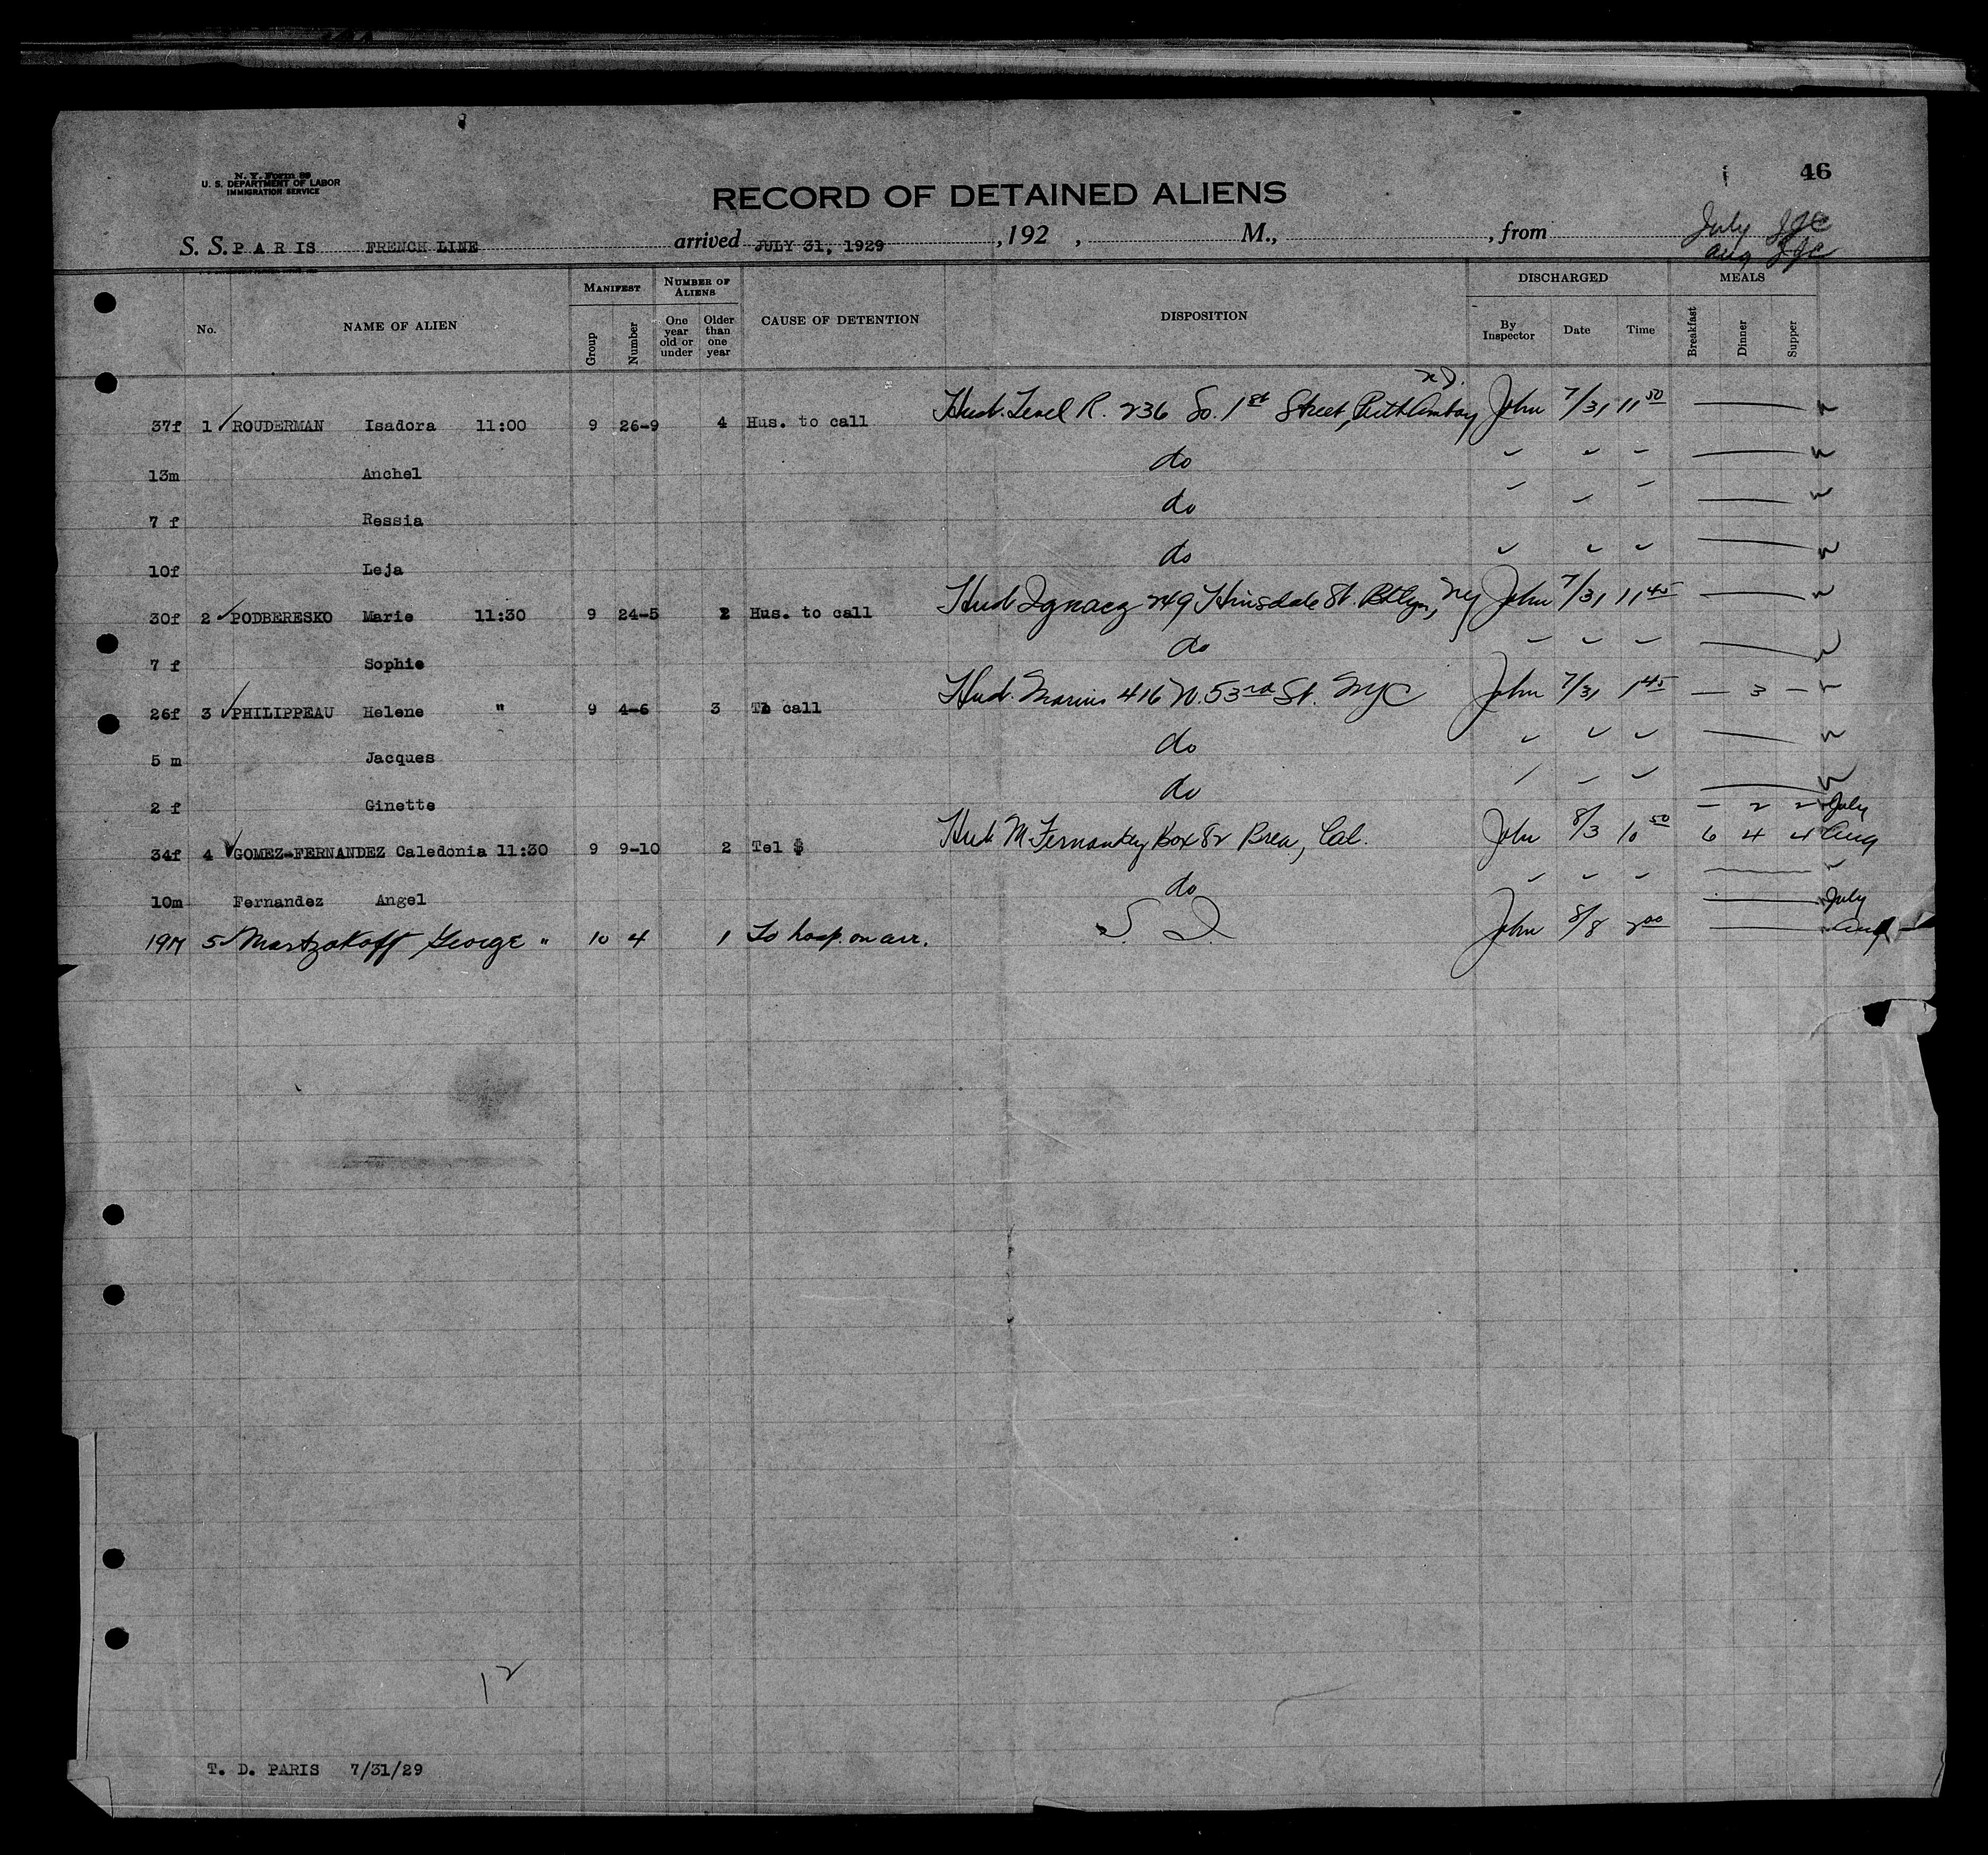 N. Y. Form 89
U. S. DEPARTMENT OF LABOR
IMMIGRATION SERVICE
46
RECORD OF DETAINED ALIENS
S. S. PARIS FRENCH LINE arrived JULY 31, 1929 , 192 , M., , from July JJC
Aug JJC
No. NAME OF ALIEN MANIFEST Group Number NUMBER OF ALIENS One year old or under Older than one year CAUSE OF DETENTION DISPOSITION DISCHARGED By Inspector Date Time MEALS Breakfast Dinner Supper
37f 1 ROUDERMAN Isadora 11:00 9 26-9 4 Hus. to call Husb. R. 236 So. 1st Street, Perth Amboy NJ. John 7/31 11 50
13m Anchel do
7 f Ressia do
10f Leja do
30f 2 PODBERESKO Marie 11:30 9 24-5 2 Hus. to call Husb Ignacz 249 Hinsdale St. Bklyn, NY John 7/31 11 45
7 f Sophie do
26f 3 PHILIPPEAU Helene " 9 4-6 3 To call Husb. Marius 416 W. 53rd St. NYC John 7/31 1 45 — 3 —
5 m Jacques do
2 f Ginette do
— 2 2 July
34f 4 GOMEZ-FERNANDEZ Caledonia 11:30 9 9-10 2 Tel $ Husb. M. Fernandez Box 82 Brea, Cal. John 8/3 10 50 6 4 4 Aug
10m Fernandez Angel do
July
19M 5 Martzokoff George " 10 4 1 To hosp. on arr. S. I. John 8/8 2 00 Aug
12
T. D. PARIS 7/31/29